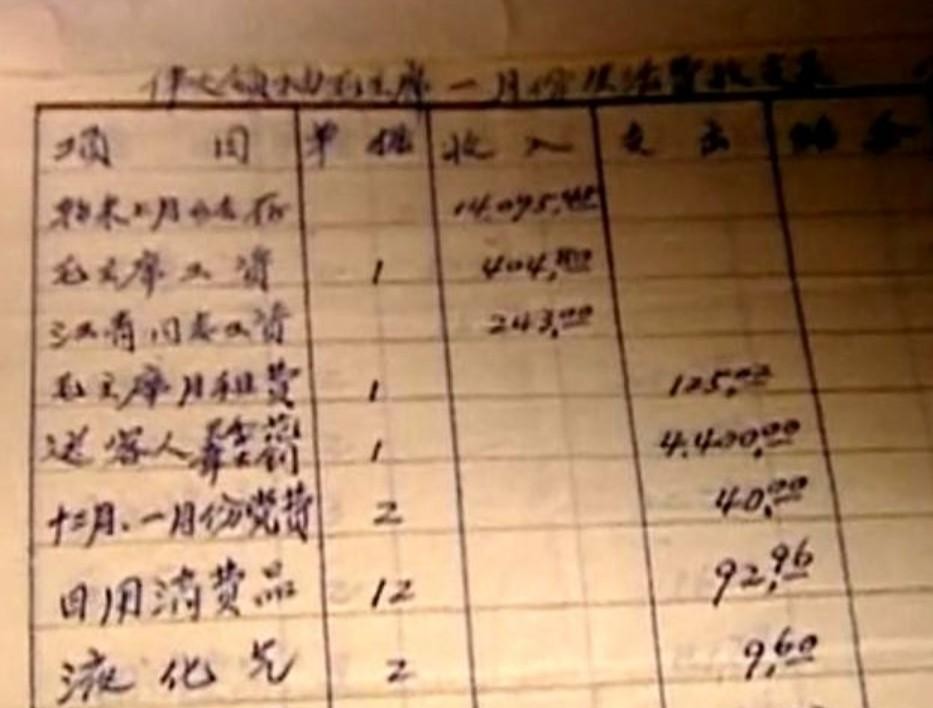 伟大领袖毛主席一月份生活费收支表
项 目 单 据 收 入 支 出 结 余
上月 14,095.48
毛主席工资 1 404.80
江青同志工资 243.00
毛主席月租费 1 125.02
送客人 1 4,400.00
十二月、一月份党费 2 40.00
日用消费品 12 92.96
液 化 气 2 9.60